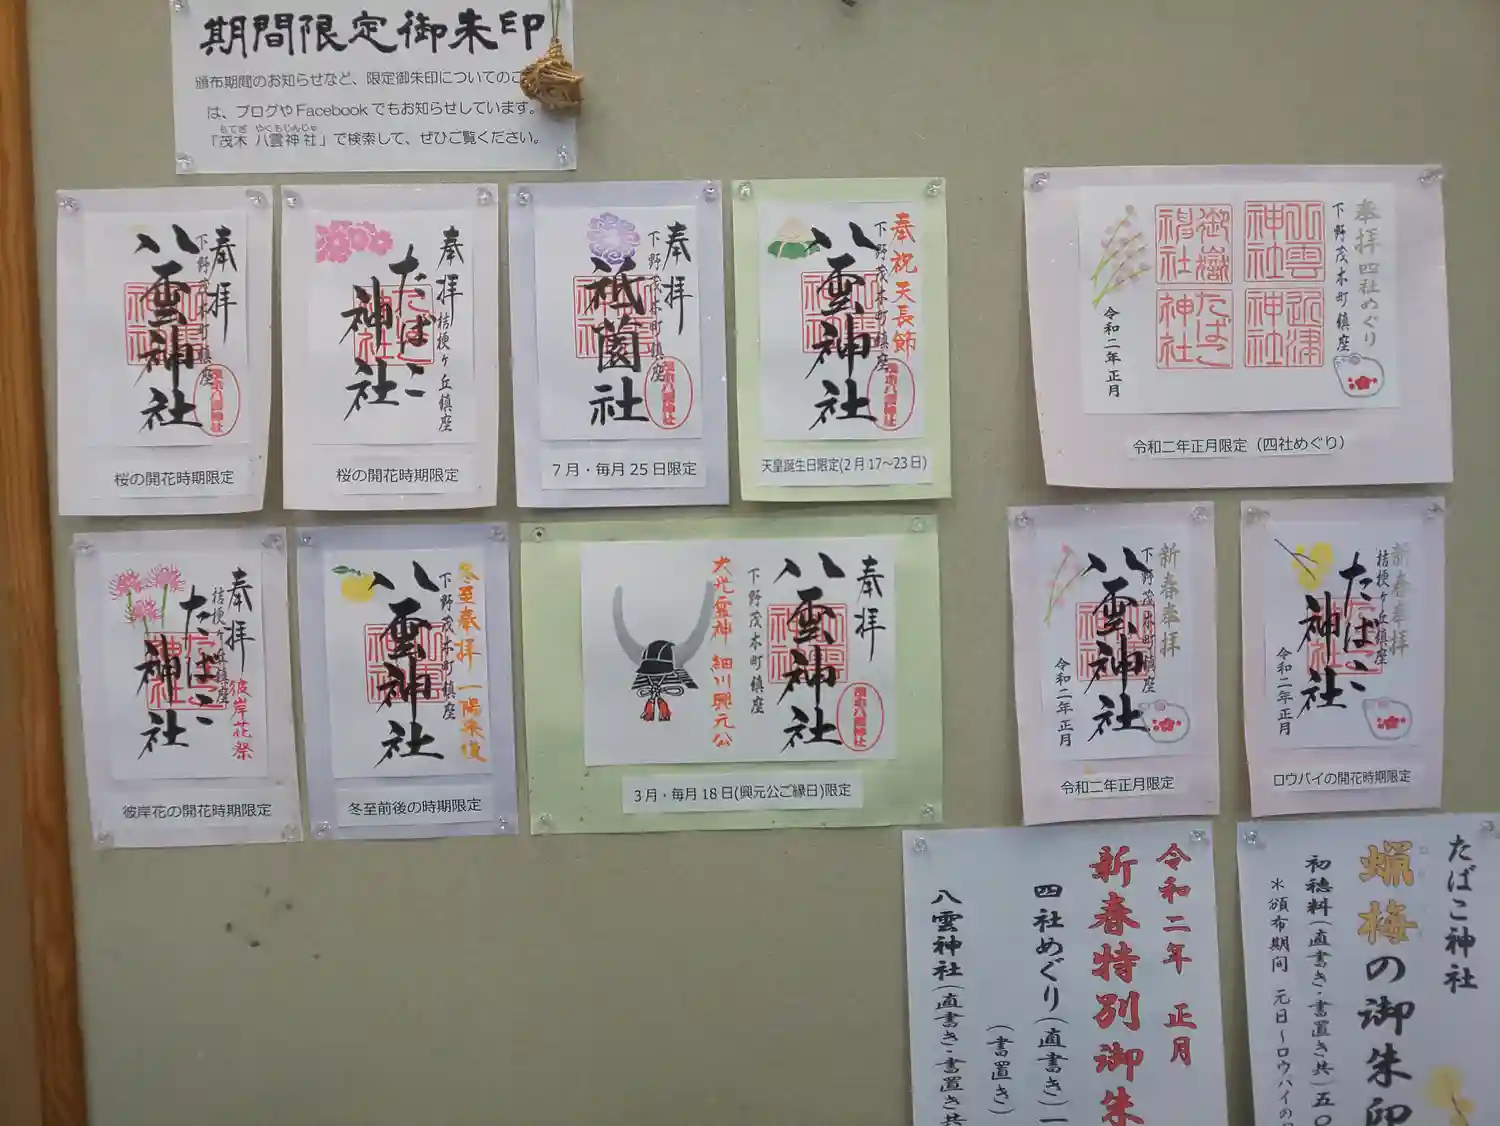 期間限定御朱印
頒布期間のお知らせなど、限定御朱印についてのご
は、ブログやFacebookでもお知らせしています。
もてぎ やくもじんじゃ
「茂木 八雲神社」で検索して、ぜひご覧ください。
奉拝
下野茂木町鎮座
八雲神社
桜の開花時期限定
奉拝
桔梗ヶ丘鎮座
たばこ
神社
桜の開花時期限定
奉拝
下野茂木町鎮座
祇園社
7月・毎月25日限定
奉祝 天長節
下野茂木町鎮座
八雲神社
天皇誕生日限定(2月17~23日)
奉拝 四社めぐり
下野茂木町鎮座
八雲神社
近津神社
御嶽
神社
たばこ神社
令和二年正月
令和二年正月限定(四社めぐり)
奉拝
桔梗ヶ丘鎮座
たばこ
神社
彼岸花祭
彼岸花の開花時期限定
冬至奉拝 一陽来復
下野茂木町鎮座
八雲神社
冬至前後の時期限定
奉拝
八雲神社
下野茂木町鎮座
大光霊神 細川興元公
3月・毎月18日(興元公ご縁日)限定
新春奉拝
下野茂木町鎮座
八雲神社
令和二年正月
令和二年正月限定
新春奉拝
桔梗ヶ丘鎮座
たばこ
神社
令和二年正月
ロウバイの開花時期限定
令和二年 正月
新春特別御朱
四社めぐり(直書き)一
(書置き)
八雲神社(直書き・書置き共
たばこ神社
蝋梅の御朱印
初穂料(直書き・書置き共)五〇
*頒布期間 元日~ロウバイの